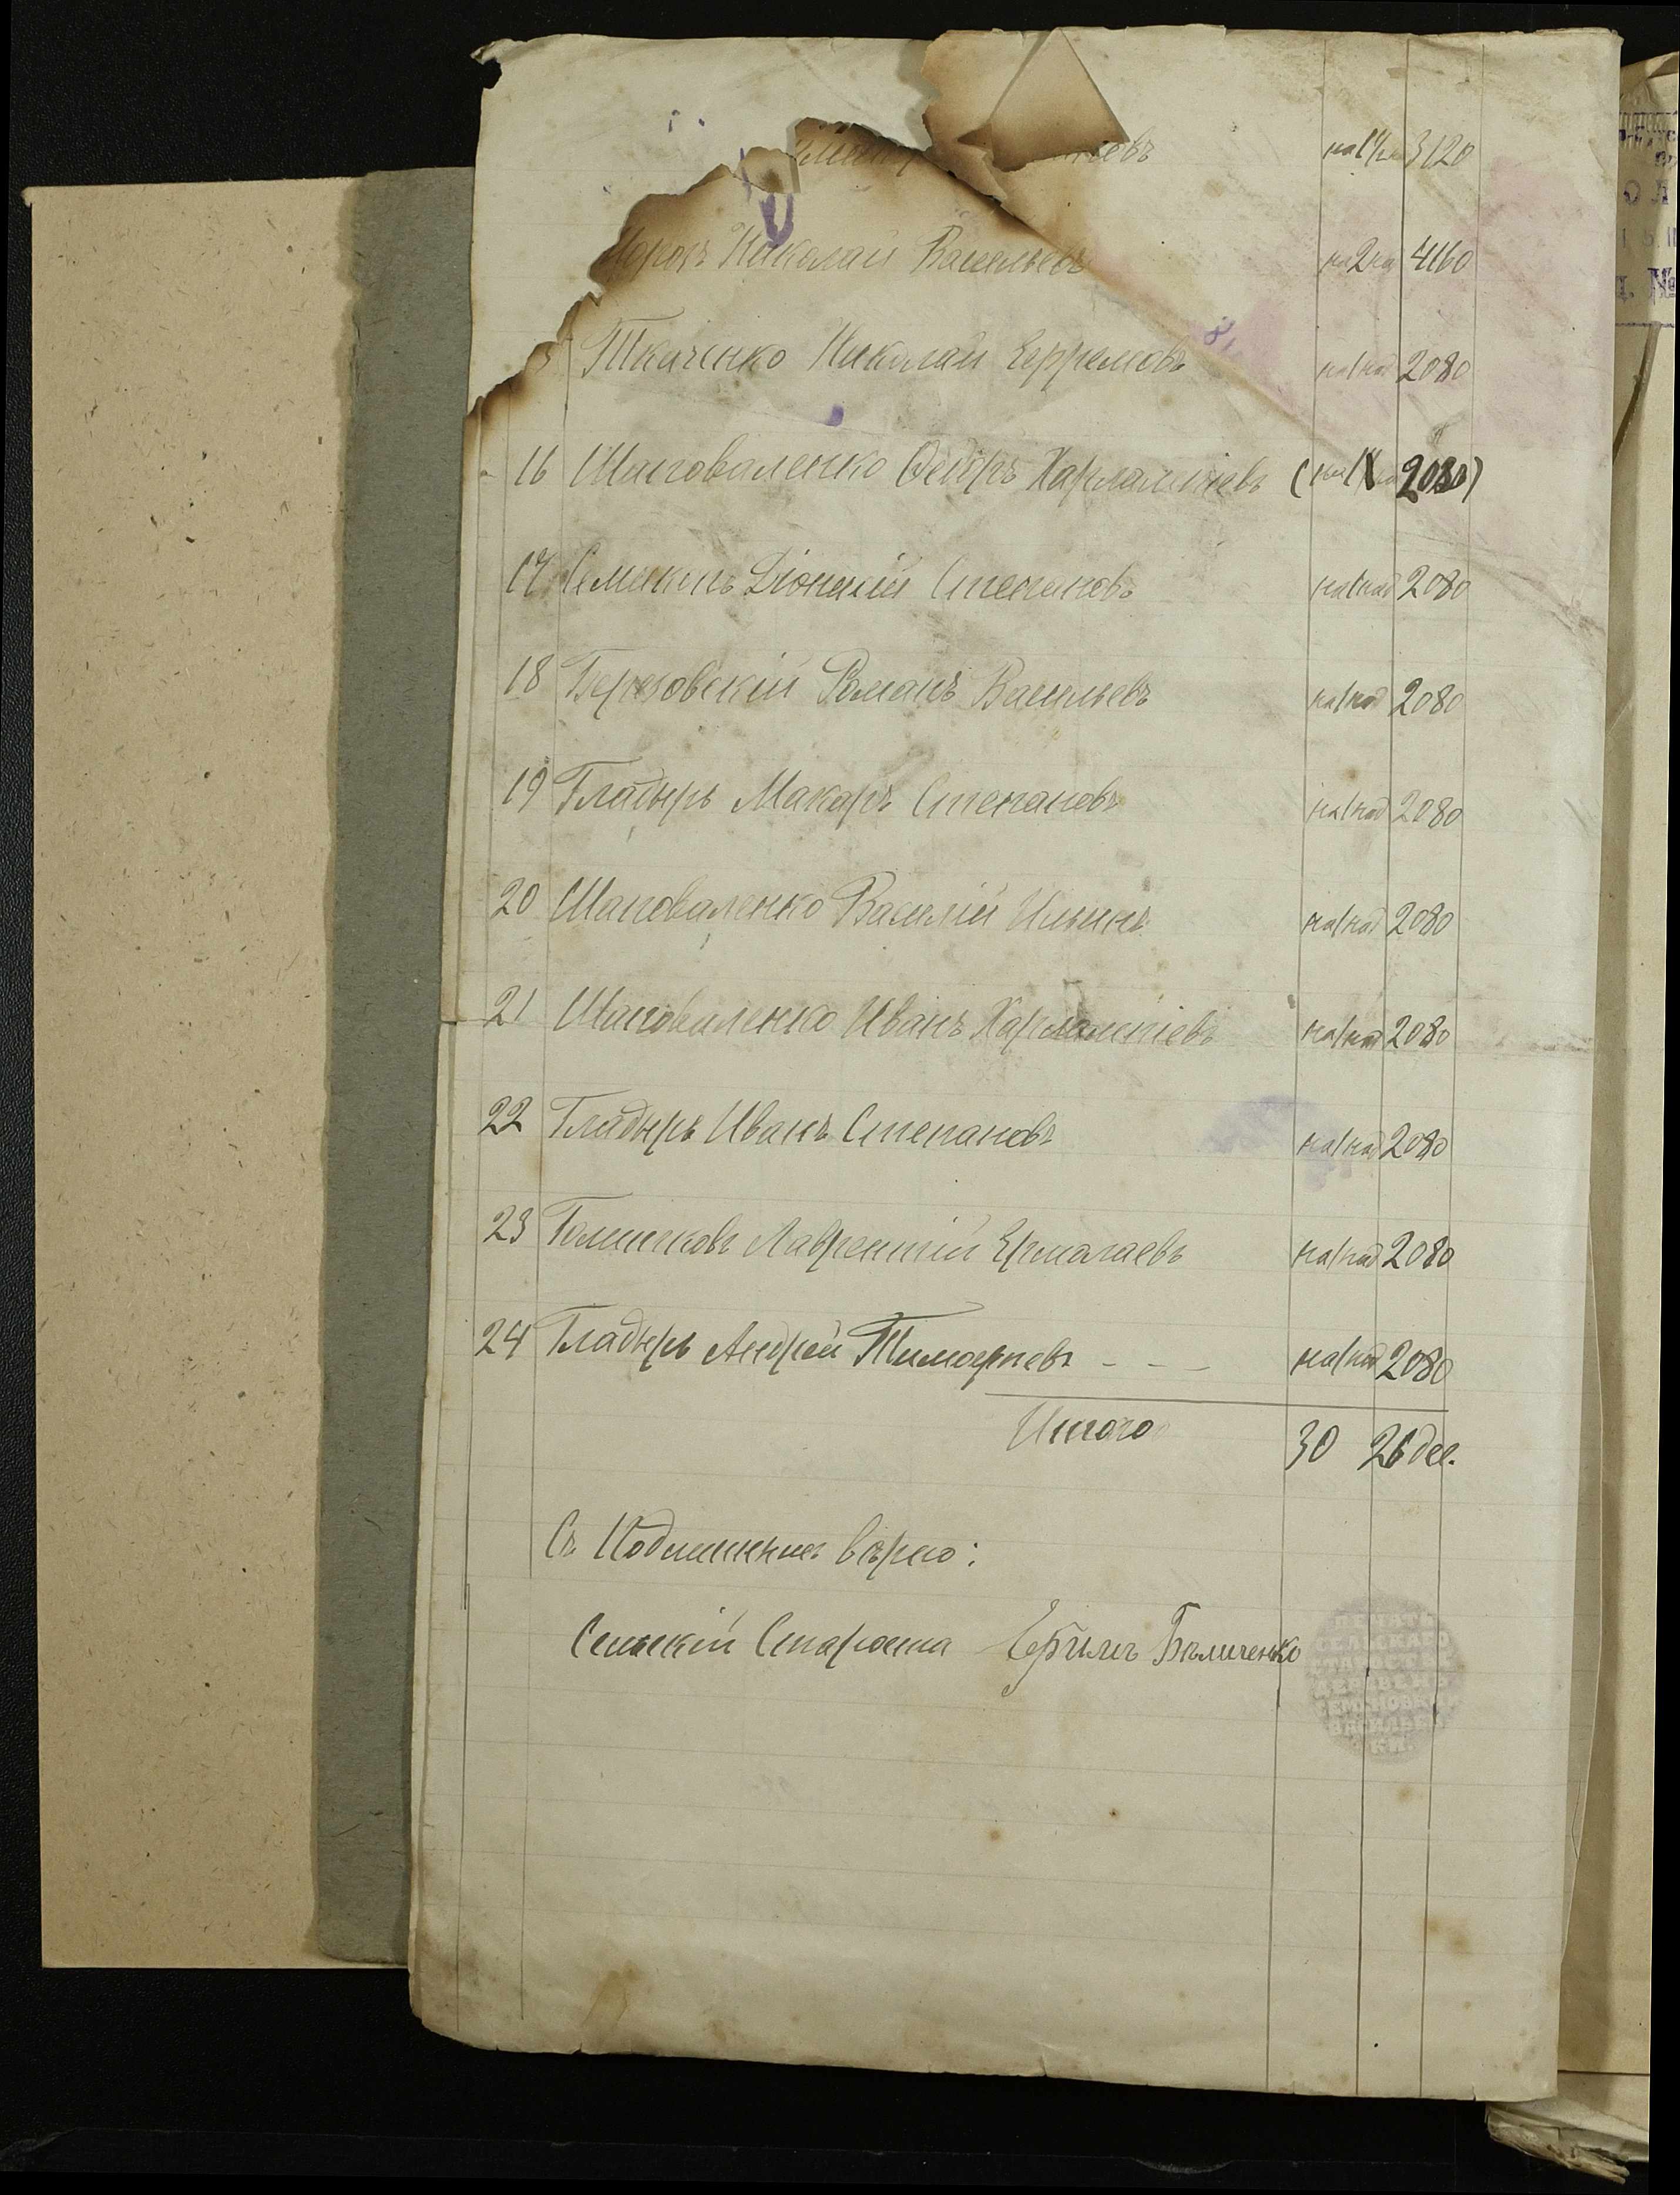 3120
Николай Васильевъ на 2 над 4160
Ткаченко Николай Ефремовъ на 1 над 2080
16 Шаповаленко Федоръ Харлампіевъ (на 1 2080)
17 Семикинъ Діонисій Степановъ на 1 над 2080
18 Березовскій Романъ Васильевъ на 1 над 2080
19 Гладырь Макаръ Степановъ на 1 над 2080
20 Шаповаленко Василій Ильинъ на 1 над 2080
21 Шаповаленко Иванъ Харлампіевъ на 1 над 2080
22 Гладырь Иванъ Степановъ на 1 над 2080
23 Лаврентій Ермолаевъ на 1 над 2080
24 Гладырь Андрей Тимофѣевъ - - - на 1 над 2080
Итого 30 26 дес.
Съ Подлиннымъ вѣрно:
Сельскій Староста Ефимъ Бѣличенко
ПЕЧАТЬ
СЕЛЬСКАГО